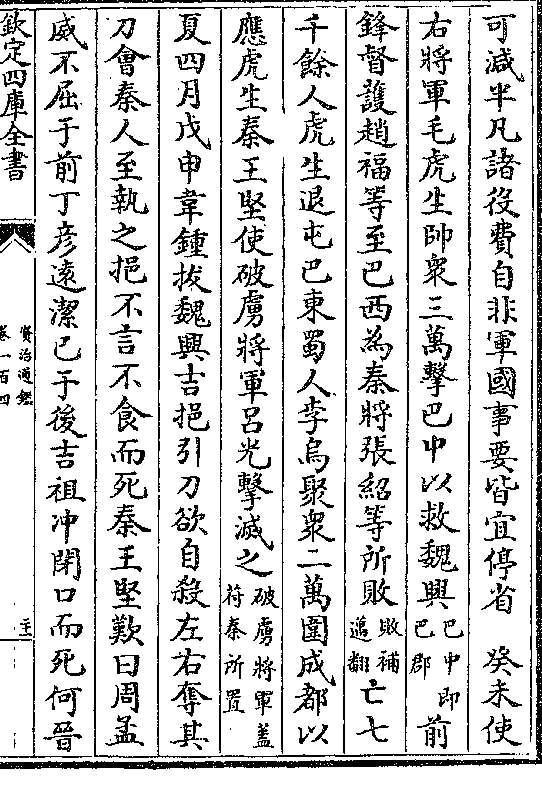 可減半凡諸役費自非軍國事要皆宜停省　癸未使
右將軍毛虎生帥衆三萬擊巴中以救魏興巴中即巴郡前
鋒督護趙福等至巴西為秦將張紹等所敗敗補邁翻亡七
千餘人虎生退屯巴東蜀人李烏聚衆二萬圍成都以
應虎生秦王堅使破虜將軍呂光擊滅之破虜將軍蓋苻秦所置
夏四月戊申韋鍾拔魏興吉挹引刀欲自殺左右奪其
刀會秦人至執之挹不言不食而死秦王堅歎曰周孟
威不屈于前丁彦遠潔已于後吉祖冲閉口而死何晉
欽定四庫全書
資治通鑑
卷一百四